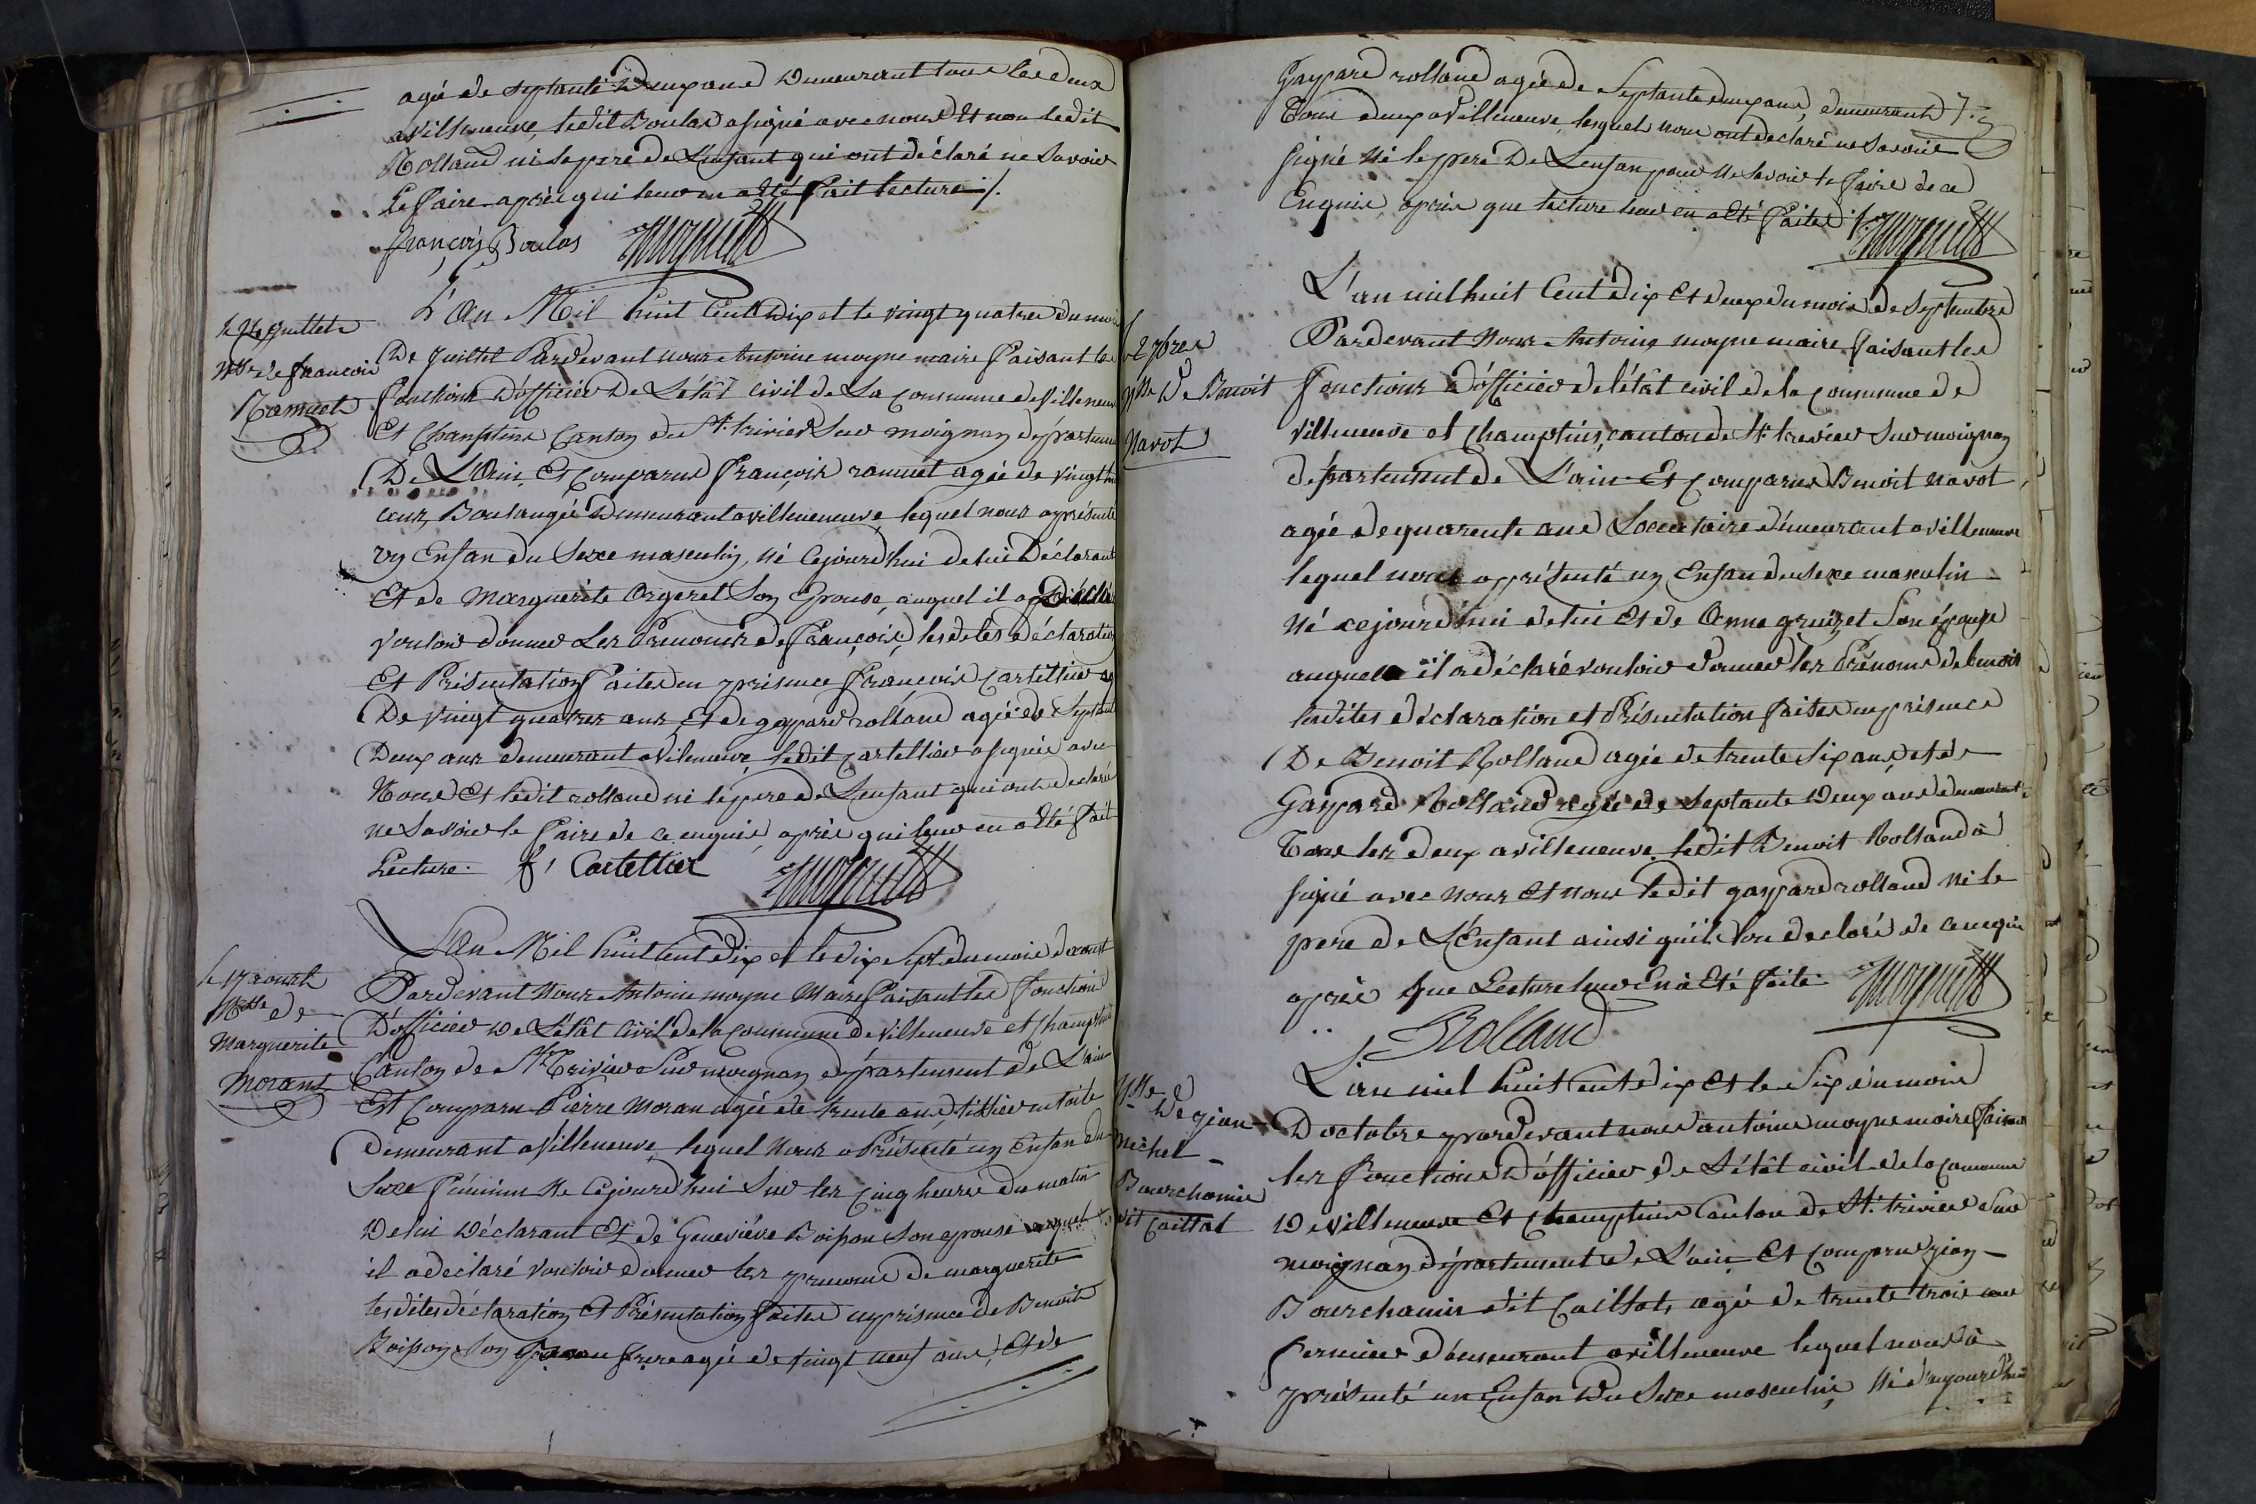 agée de septante Deux ans Demeurant tous les deux
a Villeneuve, ledit Boulas a signé avec nous et non ledit
Rolland ni le pere de L'enfant qui ont déclaré ne Savoir
Le faire après qui leur en a été fait lecture ./.
françois Boulas
L'An Mil huit Cent Dix et le vingt quatre du mois
De Juillet Pardevant nous Antoine moyne maire faisant les
fonctions D'officier De L'état civil de La commune de Villeneuve
Et Chanptins Canton de St. trivier Sur moignan département
De L'Ain, Et Comparus François ramuet agée de vingt
ans, Boulangé Demeurant a villeneneuve, lequel nous a présenté
un Enfan du Sexe masculin, né Cejourd'hui de lui Déclarant
Et de Marguerite Orgeret Son Epouse, auquel il a Déclaré
vouloir donner Les Prenoms de François, lesdites déclaration
Et Présentation faites en présence François Cartellier
De vingt quatres ans, Et de gaspard rolland agée de Septante
Deux ans demeurant a Villeneuve, ledit Cartellier a signée avec
Nous Et ledit rolland ni le pere de L'enfant qui ont declaré
ne Savoir le faire de ce enquis, après qui leur en a été fait
Lecture. f. Cartellier
le 24 Juillet
Nce de françois
Ramuet
L'An Mil huit Cent Dix et le dix Sept du mois d'aoust
Pardevant Nous Antoine moyne Maire faisant les fonctions
D'officier De L'état Civil de la commune de Villeneuve et Champtins
Canton de St. Trivier Sur moignan département de L'ain
Et Comparu Pierre Moran agée de trente ans, tissier en toile
Demeurant a Villeneuve, lequel Nous a Présenté un Enfan du
Sexe Féminin Né Cejourd'hui Sur les Cinq heures du matin
De lui Déclarant Et de Geneviéve Boisson Son epouse auquel
il a déclaré vouloir donner les prenoms de marguerite
lesdites déclaration Et Présentation faites en présence de Benoit
Boisson Son frere agée de vingt neuf ans, Et de
le 17 aoust
Nce de
Marguerite
Morant
Gaspard rolland agée de Septante deux ans, demeurant
Tous deux a Villeneuve, lesquels nous ont declaré ne Savoir
Signé Ni le pere De L'enfan pour Ne Savoir le faire de ce
Enquis, après que lecture leur en a été faites ./.
L'an mil huit Cent dix Et deux du mois de Septembre
Pardevant Nous Antoine moyne maire faisant les
fonctions D'officier de l'état civil de la commune de
villeneuve et Champtins, canton de St. trevier Sur moignan
département de L'ain Et Comparus Benoit Navot
agée de quarente ans Locataire demeurant a villeneuve
lequel nous a présenté un Enfan du sexe masculin
Né cejourd'hui de lui Et de Anne gruizet Son épouse
auquel il a déclaré vouloir donner les Prénoms de benoit
lesdites déclaration et Présentation faites en présence
De Benoit Rolland agée de trente Six ans, et de
Gaspard Rolland agée de Septante Deux ans demeurant
Tous les deux a villeneuve, ledit Benoit Rolland à
signé avec nous Et non ledit gaspard rolland Ni le
pere de L'Enfant ainsi qu'ils l'on declaré de ce enquis
après que Lecture leur En à Eté faite
Rolland
2 7bres
Nce De Benoit
Navot
L'an mil huit cent dix Et le Six du mois
D'octobre pardevant nous antoine moyne maire faisant
les fonctions D'officier de L'état civil de la commune
De villeneuve Et Champtins Canton de St. trivier Sur
moignan département De L'ain Et Comparu jean
Bourchanin dit Caillat, agée de trente trois ans
fermier demeurant a villeneuve lequel nous à
présenté un Enfan Du Sexe masculin, Né d'aujourd'hui
Nce
De jean
Michel
Bourchanin
dit Caillat